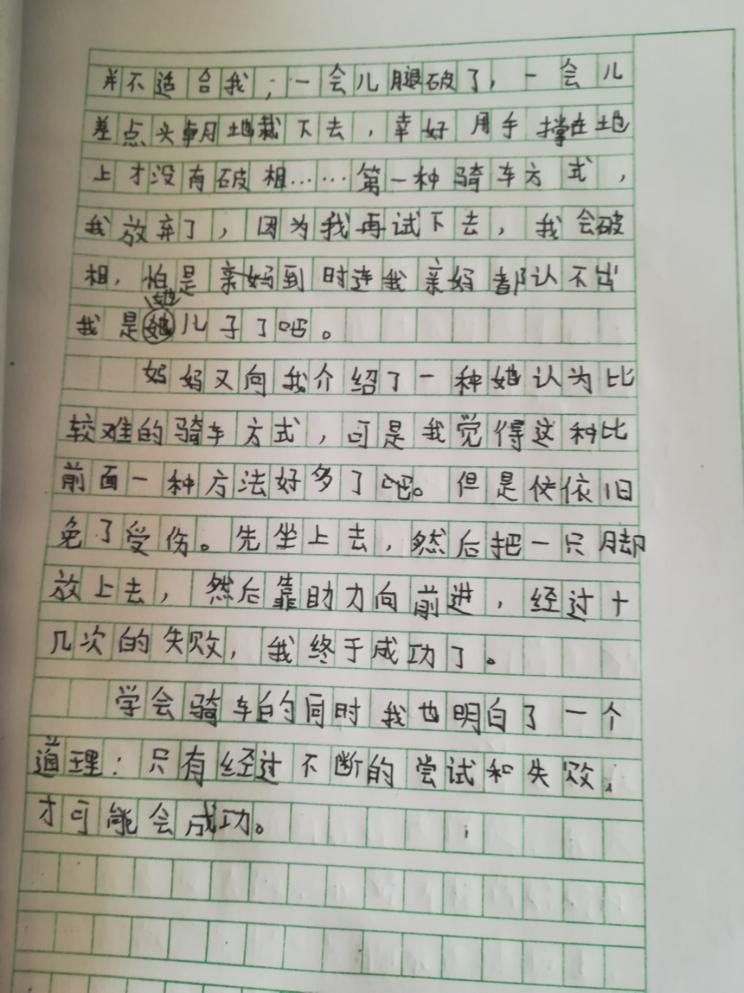 并不适合我；一会儿腿破了，一会儿
差点头朝地栽下去，幸好用手撑在地
上才没有破相……第一种骑车方式，
我放弃了，因为我再试下去，我会破
相，怕是亲妈到时连我亲妈都认不出
我是她儿子了吧。
妈妈又向我介绍了一种她认为比
较难的骑车方式，可是我觉得这种比
前面一种方法好多了吧。但是依旧
免了受伤。先坐上去，然后把一只脚
放上去，然后靠助力向前进，经过十
几次的失败，我终于成功了。
学会骑车的同时我也明白了一个
道理：只有经过不断的尝试和失败，
才可能会成功。